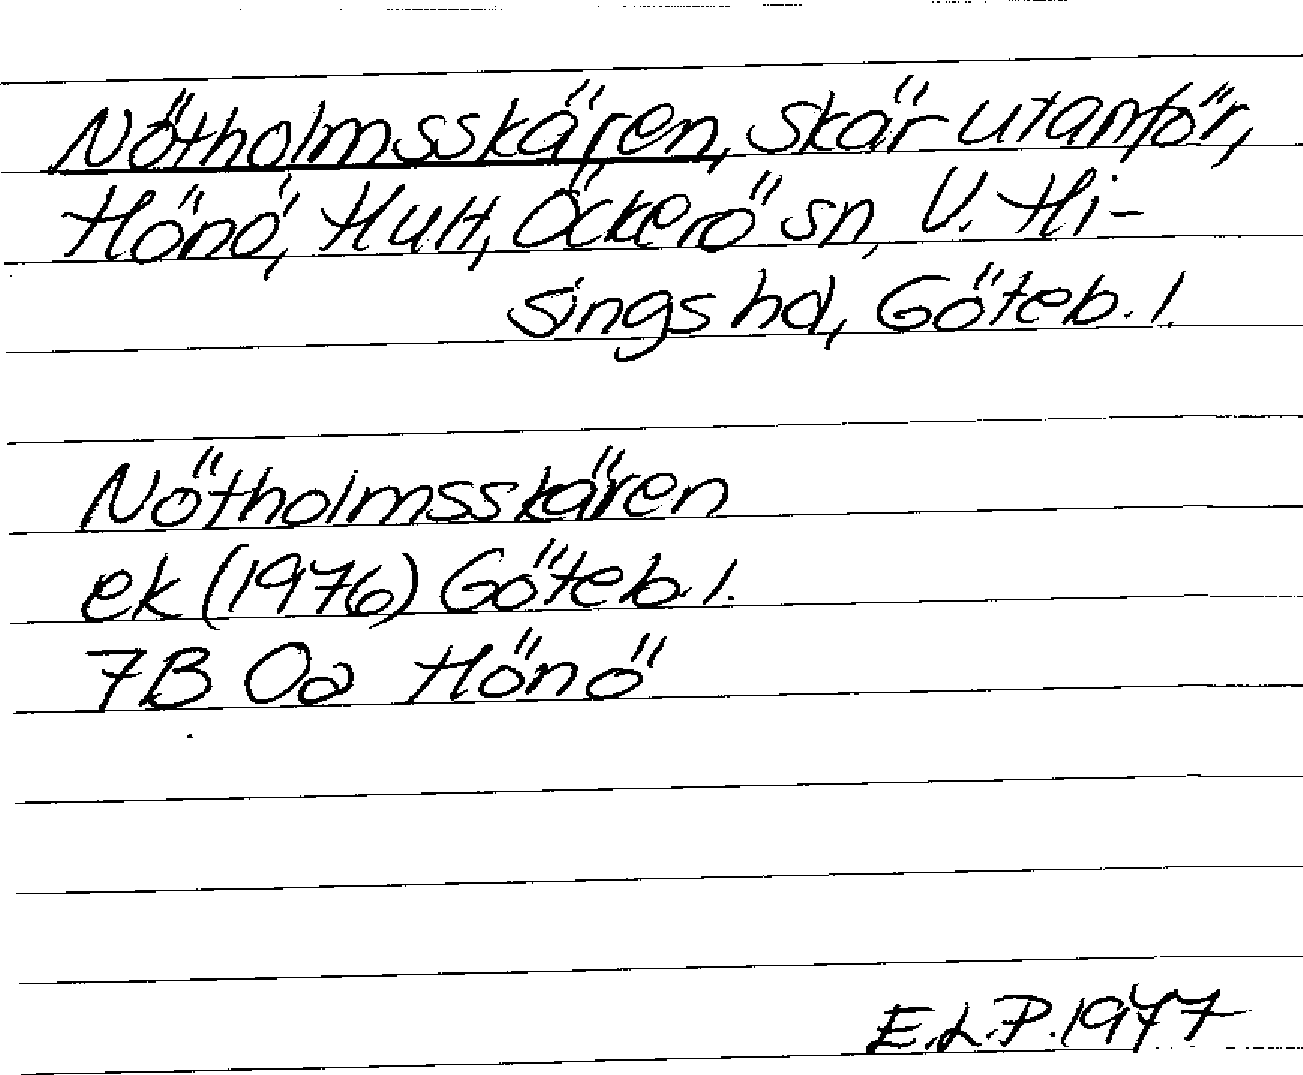 Nötholmsskären, skär utanför,
Hönö, Hult, Öckerö sn, V. Hi-
sings hd, Göteb. l.
Nötholmsskären
ek (1976) Göteb. l.
7B 0a Hönö
E.L.P. 1977